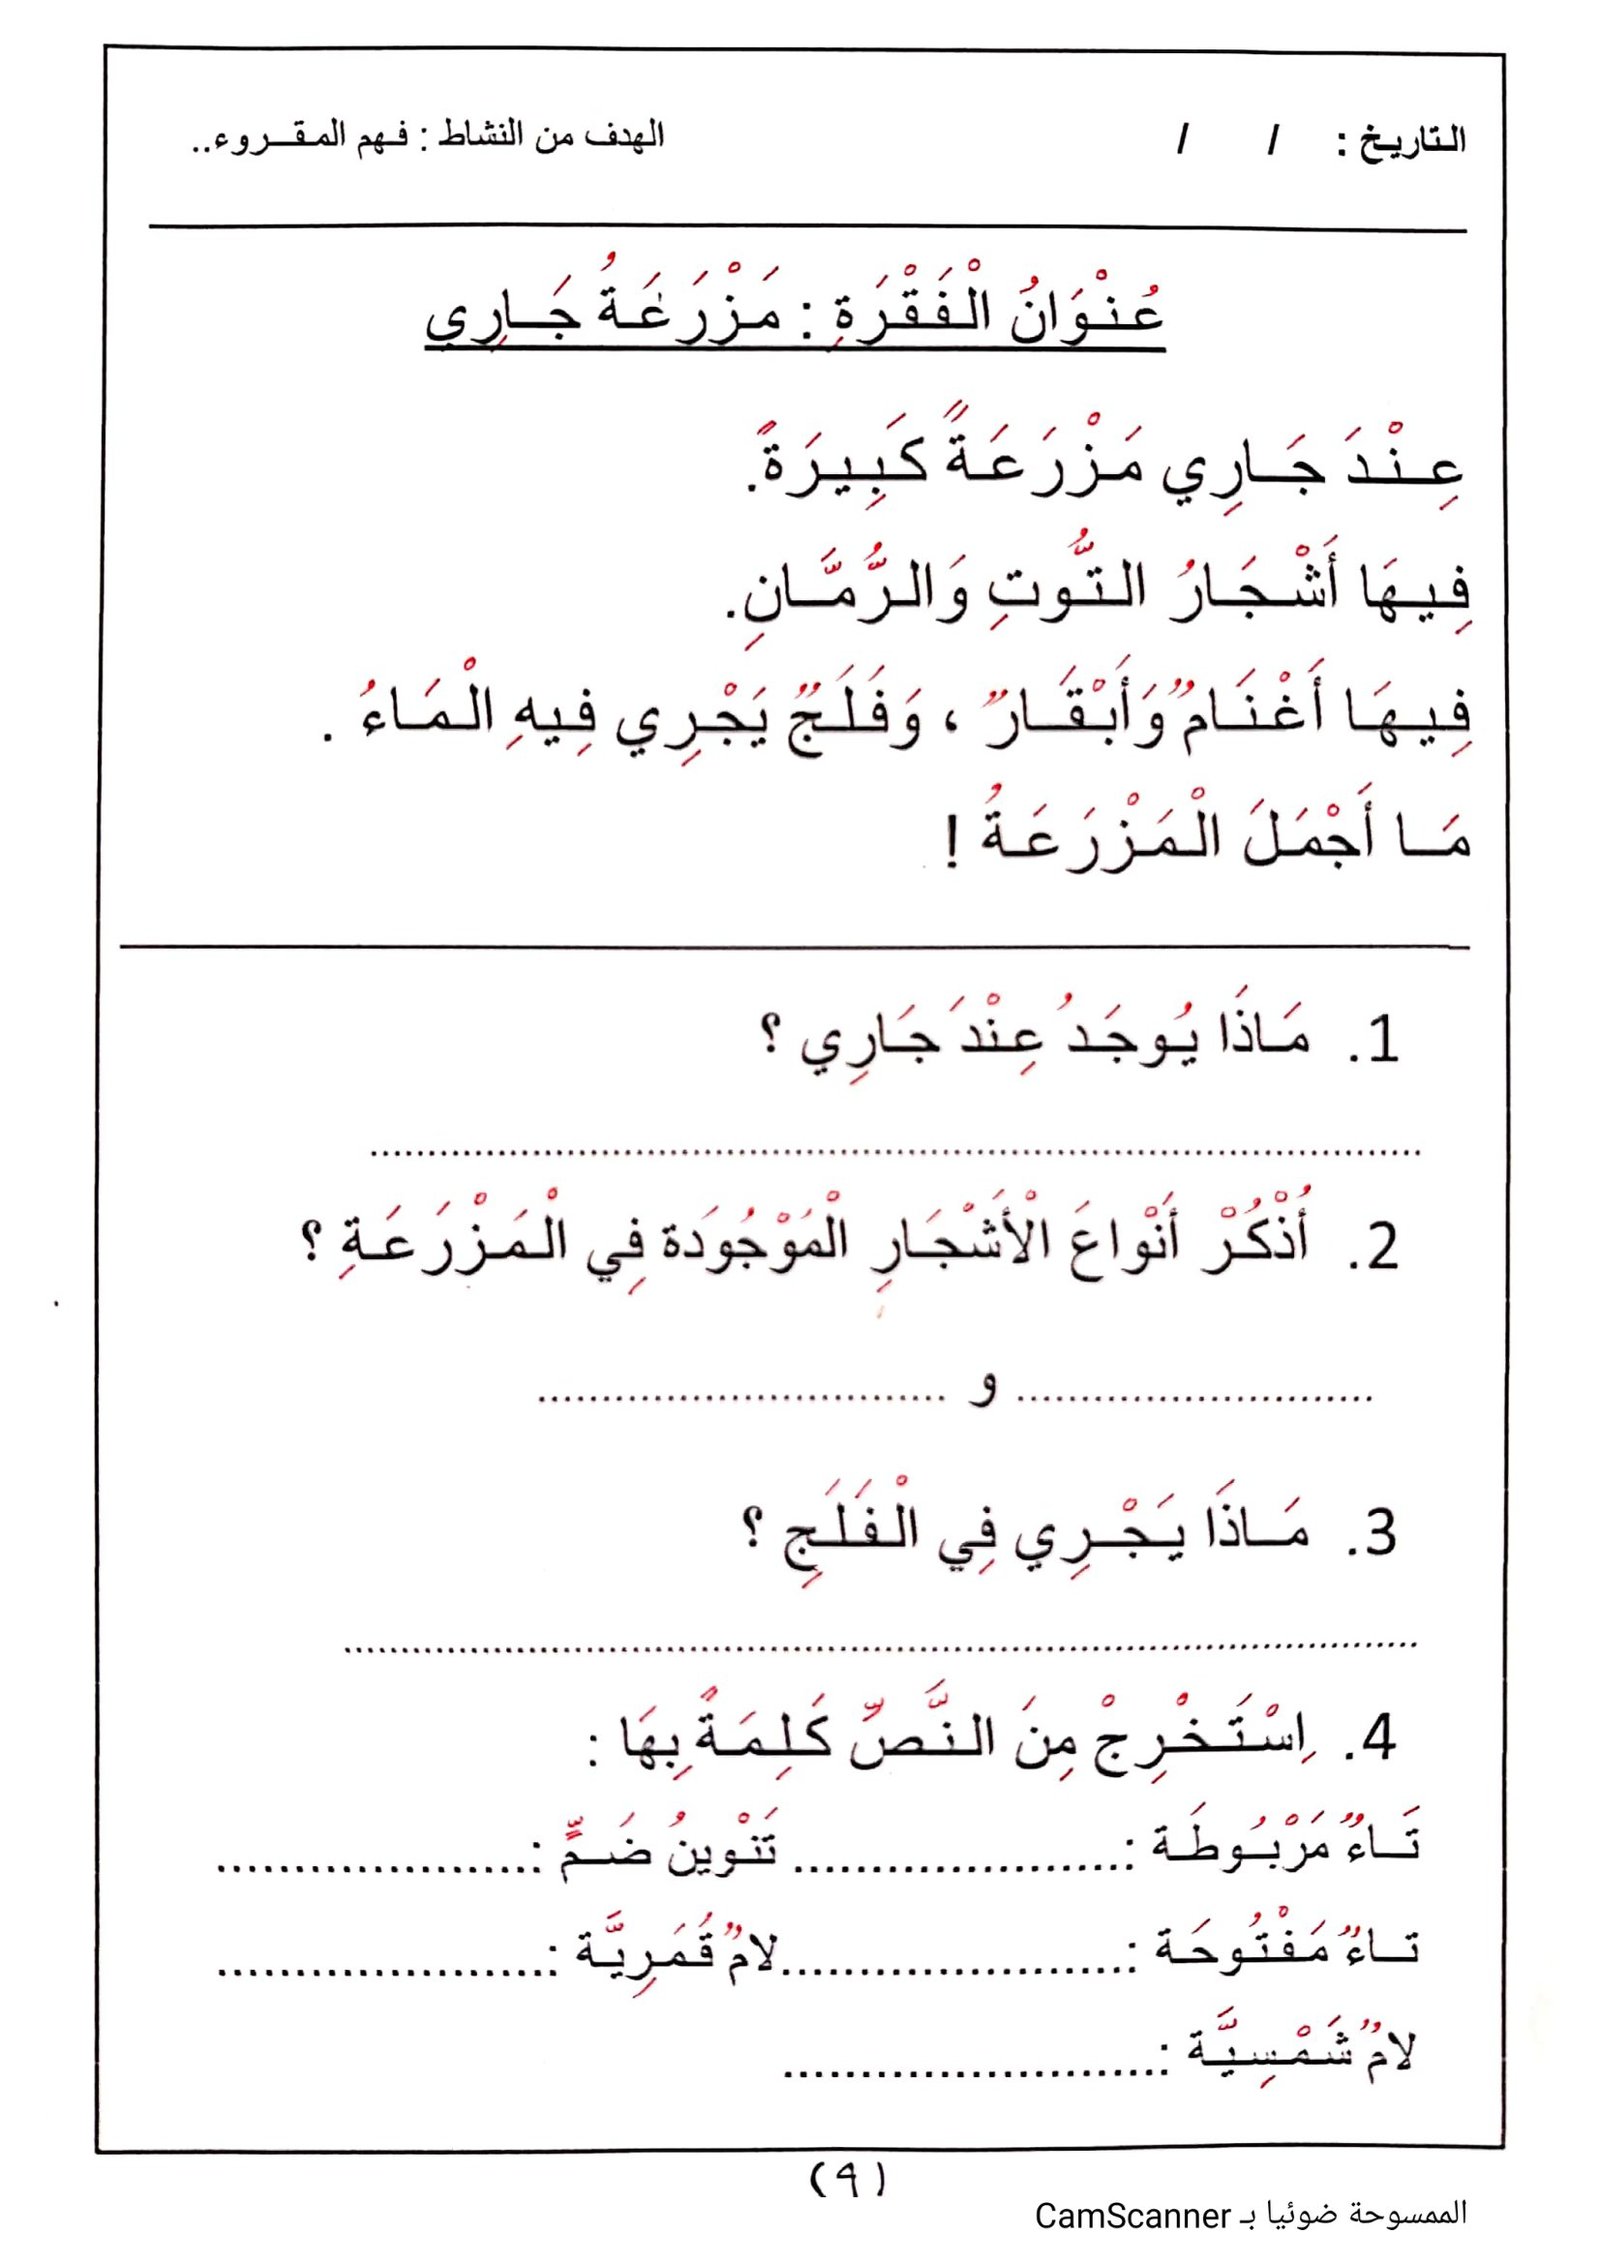 التاريخ : / / الهدف من النشاط : فهم المقروء..
عُنْوَانُ الْفَقْرَةِ : مَزْرَعَةُ جَارِي
عِنْدَ جَارِي مَزْرَعَةً كَبِيرَةً.
فِيهَا أَشْجَارُ التُّوتِ وَالرُّمَّانِ.
فِيهَا أَغْنَامٌ وَأَبْقَارٌ ، وَفَلَجٌ يَجْرِي فِيهِ الْمَاءُ .
مَا أَجْمَلَ الْمَزْرَعَةُ !
1. مَاذَا يُوجَدُ عِنْدَ جَارِي ؟
2. أُذْكُرْ أَنْواعَ الْأَشْجَارِ الْمَوْجُودَة فِي الْمَزْرَعَةِ ؟
........................... و ...............................
3. مَاذَا يَجْرِي فِي الْفَلَجِ ؟
4. اِسْتَخْرِجْ مِنَ النَّصِّ كَلِمَةً بِهَا :
تَاءٌ مَرْبُوطَة :...................... تَنْوِينُ ضَمٍّ :.....................
تاءٌ مَفْتُوحَة :.......................لامٌ قَُمَرِيَّة :.......................
لامٌ شَمْسِيَّة :..........................
(٩)
الممسوحة ضوئيا بـ CamScanner